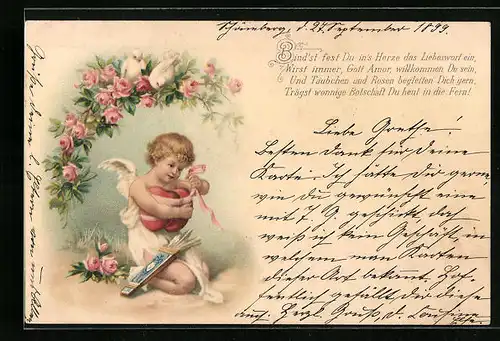 Schömberg, d. 27. September 1899.
Bind'st fest Du in's Herze das Liebeswort ein,
Wirst immer, Gott Amor, willkommen Du sein,
Und Täubchen und Rosen begleiten Dich gern,
Trägst wonnige Botschaft Du heut in die Fern!
Liebe Grethe!
Besten Dank für deine
Karte. Ich hätte dir gerne,
wie du gewünscht eine
mit 7. 9 geschickt, doch
weiß ich kein Geschäft, in
welchem man Karten
dieser Art bekommt. Hof-
fentlich gefällt dir diese
auch. Herzl. Gruß, d. Cousine
Grüße deine l. Eltern von